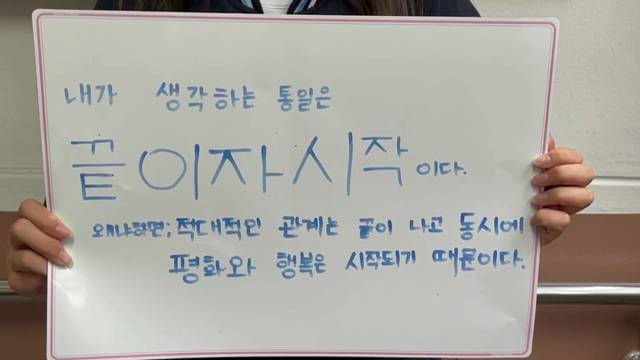 내가 생각하는 통일은
끝이자 시작이다.
왜냐하면; 적대적인 관계는 끝이 나고 동시에
평화와 행복은 시작되기 때문이다.